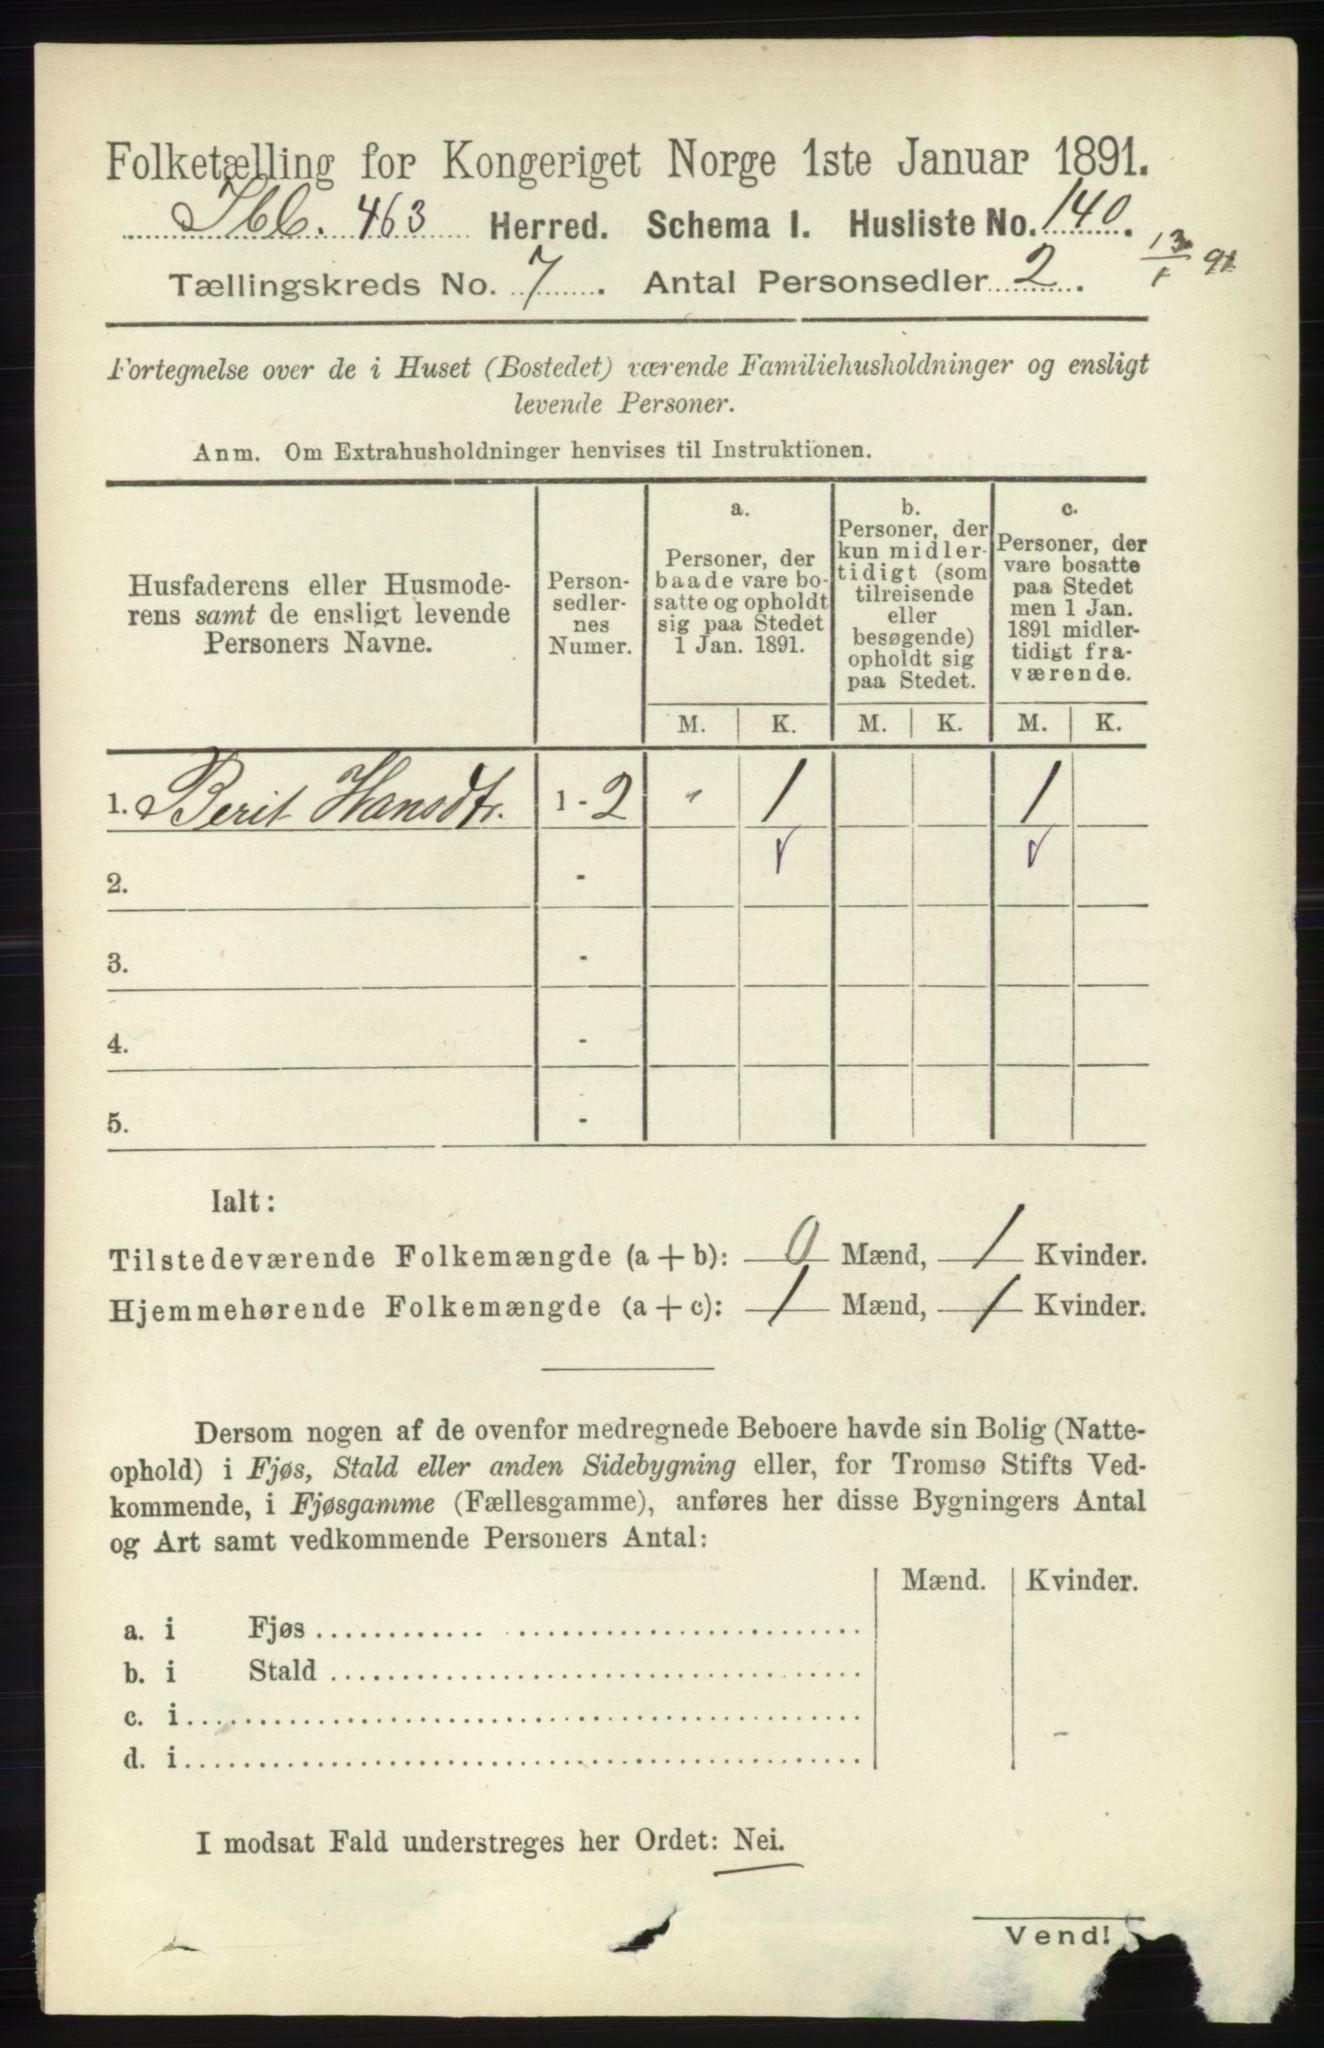 Folketælling for Kongeriget Norge 1ste Januar 1891.
463 Herred. Schema I. Husliste No. 140.
13/1 91
Tællingskreds No. 7. Antal Personsedler 2.
Fortegnelse over de i Huset (Bostedet) værende Familiehusholdninger og ensligt
levende Personer.
Anm. Om Extrahusholdninger henvises til Instruktionen.
Husfaderens eller Husmode-
rens samt de ensligt levende
Personers Navne.
Person-
sedler-
nes
Numer.
a.
Personer, der
baade vare bo-
satte og opholdt
sig paa Stedet
1 Jan. 1891.
b.
Personer, der
kun midler-
tidigt (som
tilreisende
eller
besøgende)
opholdt sig
paa Stedet.
c.
Personer, der
vare bosatte
paa Stedet
men 1 Jan.
1891 midler-
tidigt fra-
værende.
M. K. M. K. M. K.
1. Berit Hansdtr. 1 - 2 " 1 1
2. - √ √
3. -
4. -
5. -
Ialt:
Tilstedeværende Folkemængde (a + b): 0 Mænd, 1 Kvinder.
Hjemmehørende Folkemængde (a + c): 1 Mænd, 1 Kvinder.
Dersom nogen af de ovenfor medregnede Beboere havde sin Bolig (Natte-
ophold) i Fjøs, Stald eller anden Sidebygning eller, for Tromsø Stifts Ved-
kommende, i Fjøsgamme (Fællesgamme), anføres her disse Bygningers Antal
og Art samt vedkommende Personers Antal:
Mænd. Kvinder.
a. i Fjøs
b. i Stald
c. i
d. i
I modsat Fald understreges her Ordet: Nei.
Vend!